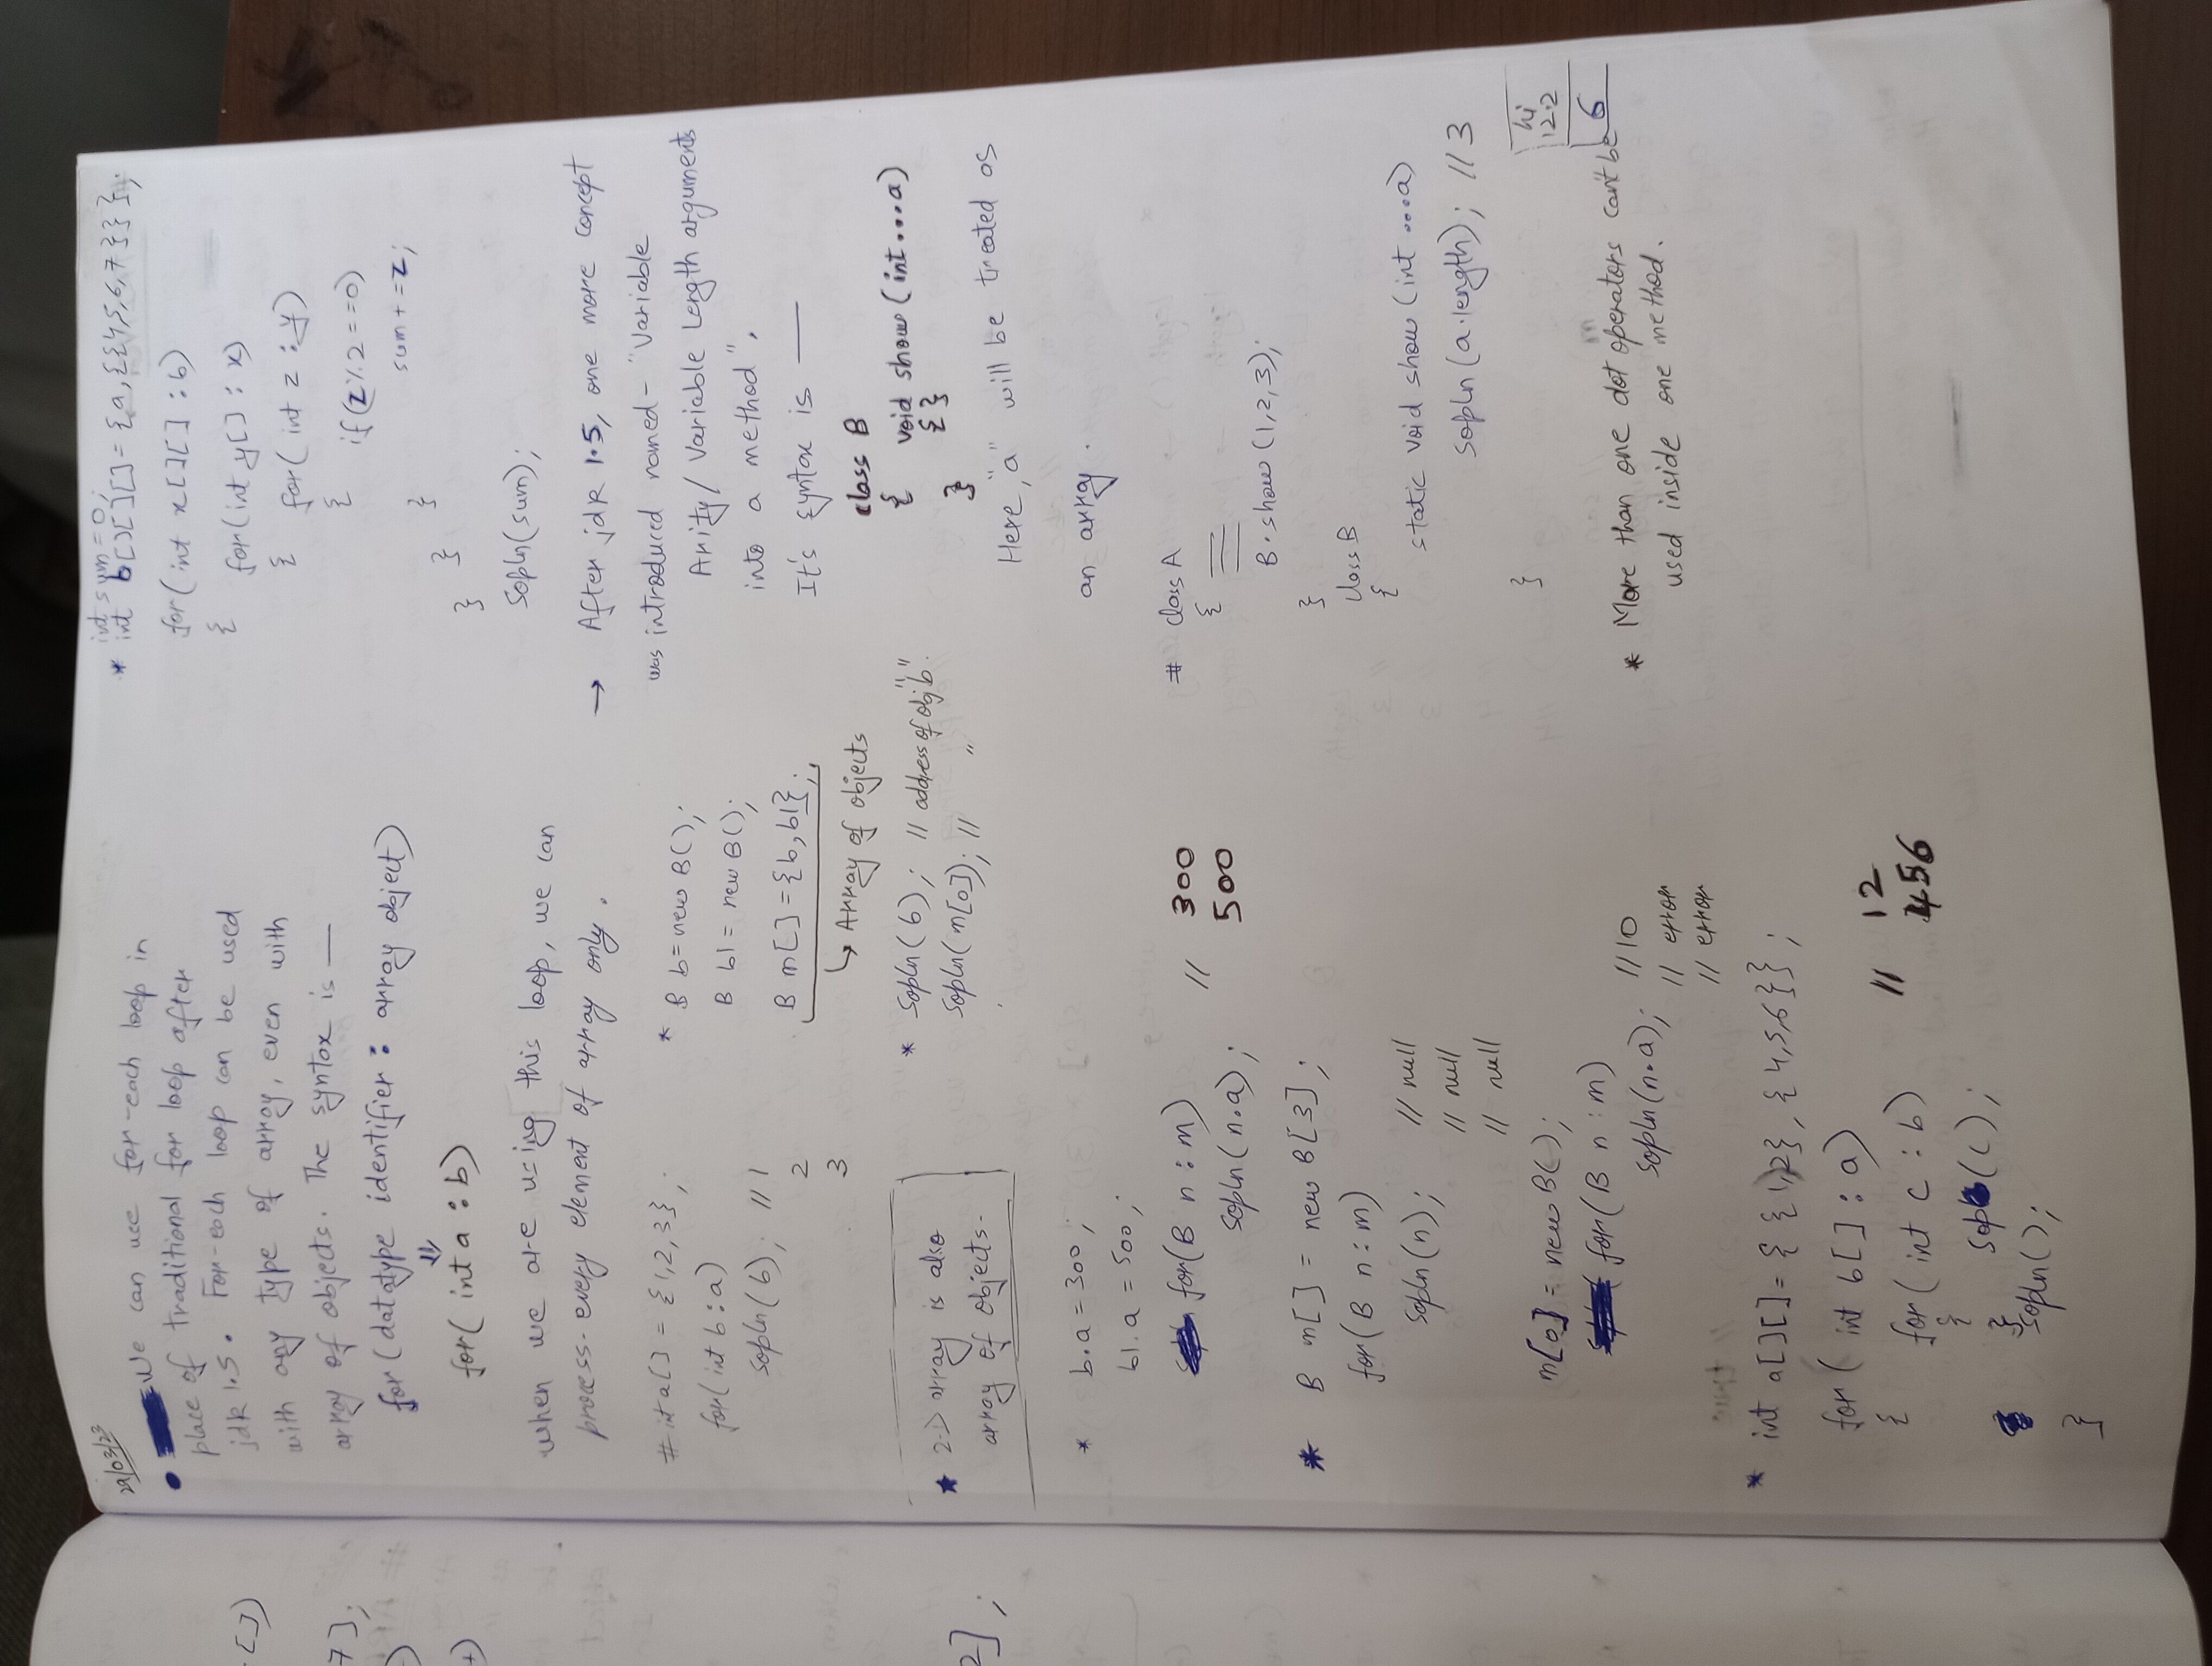 29/03/23
We can use for-each loop in
place of traditional for loop after
jdk 1.5. For-each loop can be used
with any type of array, even with
array of objects. The syntax is —
for (datatype identifier : array object)
⇓
for( int a : b)
when we are using this loop, we can
process every element of array only.
# int a[] = {1,2,3} ;
for(int b : a)
sopln(b); // 1
2
3
* B b = new B();
B b1 = new B();
B m[] = {b, b1};
↳ Array of objects
* 2-D array is also
array of objects.
* sopln(b); // address of obj "b".
sopln(m[0]); // "
* b.a = 300 ;
b1.a = 500 ;
for(B n : m) // 300
sopln(n.a) ; 500
* B m[] = new B[3] ;
for(B n : m)
sopln(n); // null
// null
// null
m[0] = new B();
for(B n : m)
sopln(n.a); // 10
// error
// error
* int a[][] = { {1,2}, {4,5,6}} ;
for ( int b[] : a)
{ for( int c : b) // 12
456
{
sop(c);
}
sopln();
}
int sum = 0;
* int b[][][] = {a, {{4,5,6,7}} };
for( int x[][] : b)
{ for(int y[] : x)
{ for( int z : y)
{ if(z%2==0)
sum+=z;
}
}
}
sopln(sum);
→ After jdk 1.5, one more concept
was introduced named - "Variable
Arity/ Variable Length arguments
into a method".
It's syntax is —
class B
{ void show (int...a)
{ }
}
Here, "a" will be treated as
an array.
# class A
{
B.show (1,2,3);
}
class B
{
static void show (int ...a)
sopln (a.length); // 3
}
hi
12.2
6
* More than one dot operators can't be
used inside one method.